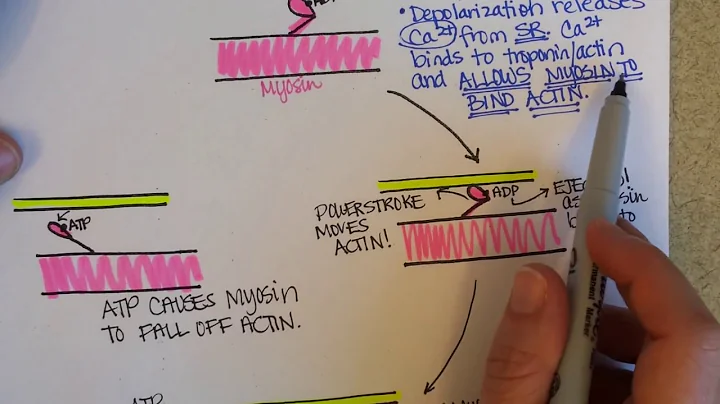 • Depolarization releases
Ca2+ from SR. Ca2+
binds to troponin/actin
and ALLOWS MYOSIN TO
BIND ACTIN.
Myosin
ADP
POWERSTROKE
MOVES
ACTIN!
ATP
ATP CAUSES Myosin
TO FALL OFF ACTIN.
ATP